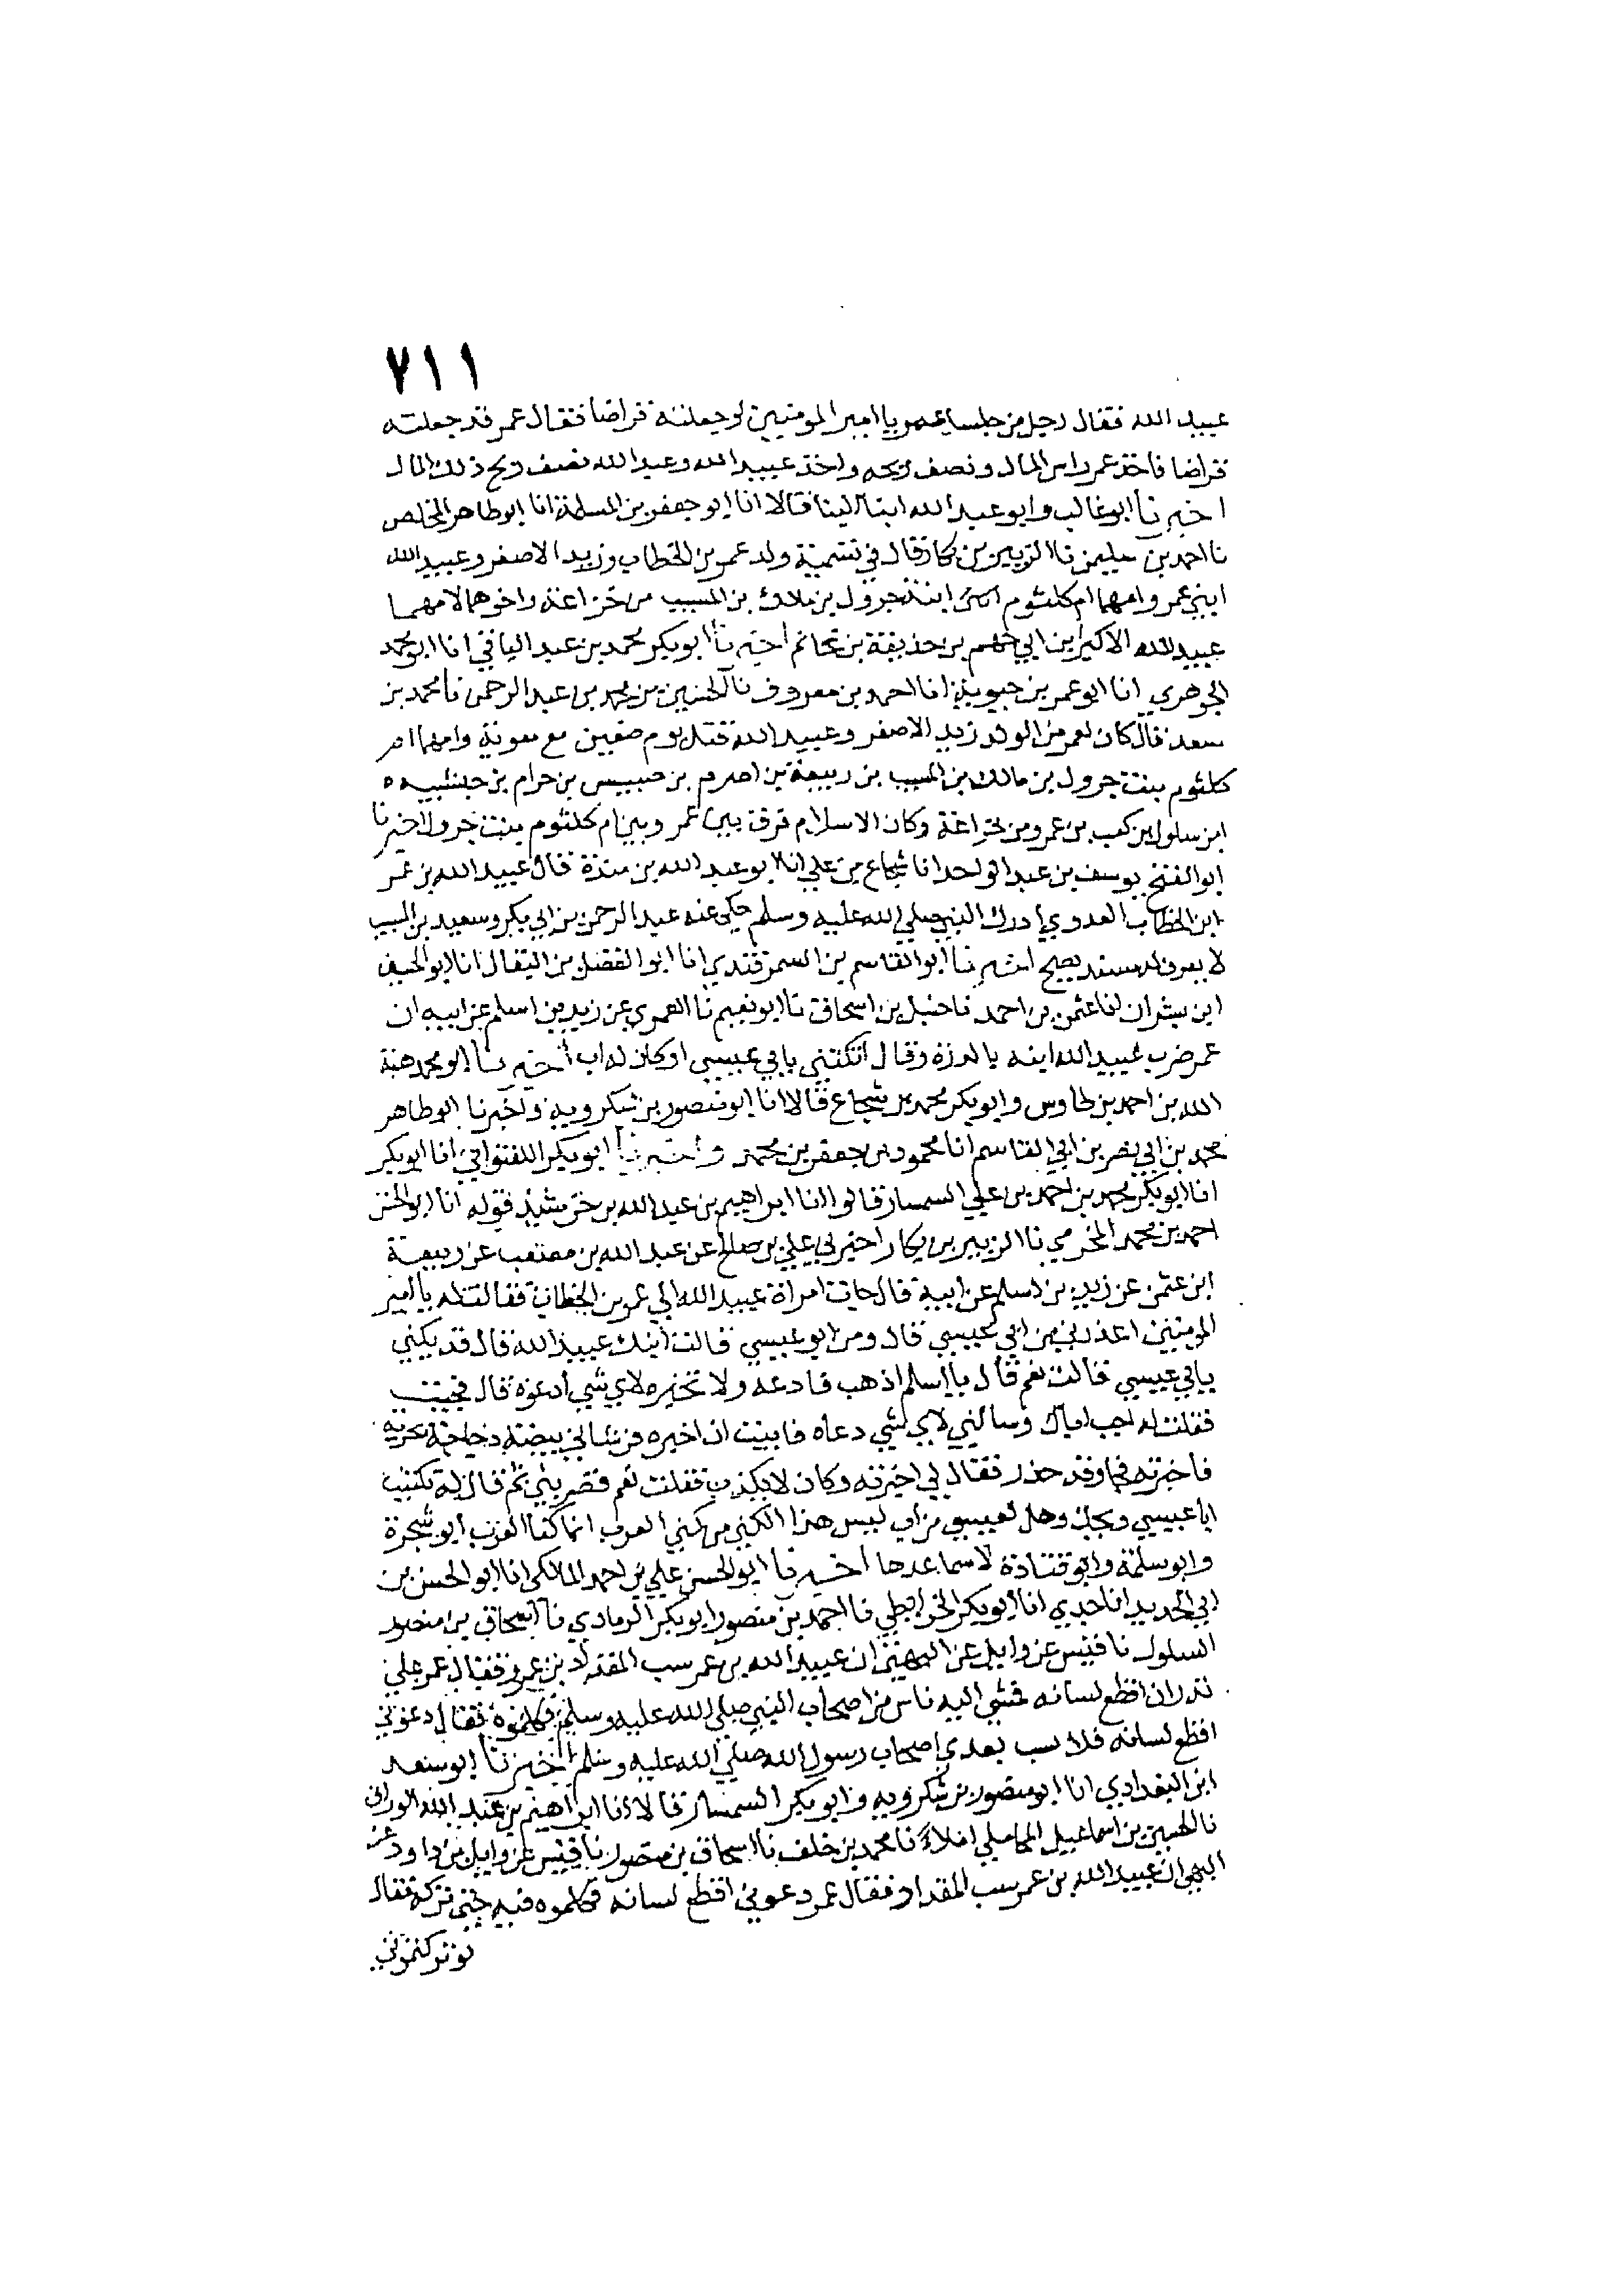 ٧١١
عبيد الله فقال رجل من جلسا عمر يا امير المومنين لو جعلته قراضا فقال عمر قد جعلته
قراضا فاخذ عمر راس المال ونصف ربحه واخذ عبيد الله وعبد الله نصف ربح ذلك المال
اخبرنا ابو غالب وابو عبد الله ابنا البنا قالا انا ابو جعفر بن المسلمة انا ابو طاهر المخلص
نا احمد بن سليمن نا الزبير بن بكار قال في تسمية ولد عمر بن الخطاب وزيد الاصغر وعبيد الله
ابني عمر وامهما ام كلثوم ابنة جرول بن مالك بن المسيب من خزاعة واخوهما لامهما
عبيد الله الاكبر ابن ابي جهم بن حذيفة بن غانم اخبرنا ابو بكر محمد بن عبد الباقي انا ابو محمد
الجوهري انا ابو عمر بن حيوية انا احمد بن معروف نا الحسين بن محمد بن عبد الرحمن نا محمد بن
سعد قال كان لعمر من الولد زيد الاصغر وعبيد الله قتل يوم صفين مع معوية وامهما ام
كلثوم بنت جرول بن مالك بن المسيب بن ربيعة بن اصرم بن ضبيس بن حرام بن حبشية
ابن سلول بن كعب بن عمرو من خزاعة وكان الاسلام فرق بين عمر وبين ام كلثوم بنت جرول اخبرنا
ابو الفتح يوسف بن عبد الواحد انا شجاع بن علي انا ابو عبد الله بن مندة قال عبيد الله بن عمر
ابن الخطاب العدوي ادرك النبي صلي الله عليه وسلم حكي عنه عبد الرحمن بن ابي بكر وسعيد بن المسيب
لا يعرف له مسند صحيح اخبرنا ابو القاسم بن السمرقندي انا ابو الفضل بن البقال انا ابو الحسين
ابن بشران انا عثمن بن احمد نا حنبل بن اسحاق نا ابو نعيم نا العمري عن زيد بن اسلم عن ابيه ان
عمر ضرب عبيد الله ابنه بالدرة وقال اتكتني بابي عيسي اوكان له اب اخبرنا ابو محمد هبة
الله بن احمد بن طاوس وابو بكر محمد بن شجاع قالا انا ابو منصور بن شكرويه واخبرنا ابو طاهر
محمد بن ابي نصر بن ابي القاسم انا محمود بن جعفر بن محمد واخبرنا ابو بكر اللفتواني انا ابو بكر
انا ابو بكر محمد بن احمد بن علي السمسار قالوا انا ابراهيم بن عبد الله بن خرشيذ قوله انا ابو الحسن
احمد بن محمد المخرمي نا الزبير بن بكار اخبرني علي بن صالح عن عبد الله بن مصعب عن ربيعة
ابن عثمن عن زيد بن اسلم عن ابيه قال جات امراة عبيد الله الي عمر بن الخطاب فقالت له يا امير
المومنين اعذرني من ابي عيسي قال ومن ابو عيسي قالت ابنك عبيد الله قال قد يكني
بابي عيسي قالت نعم قال يا اسلم اذهب فادعه ولا تخبره لاي شي ادعوه قال فجيت
فقلت له اجب اباك وسالني لاي شي دعاه فابيت ان اخبره فرشاني بيضة دجاجة بحرية
فاخبرته فجا وقد حذر فقال لي اخبرته وكان لا يكذب فقلت نعم فضربني ثم قال له تكنيت
ابا عيسي ويحك وهل لعيسي من اب ليس هذا الكني من كني العرب انما كنا العرب ابو شجرة
وابو سلمة وابو قتادة لاسما عدها اخبرنا ابو الحسن علي بن احمد المالكي انا ابو الحسن بن
ابي الحديد انا جدي انا ابو بكر الخرايطي نا احمد بن منصور ابو بكر الرمادي نا اسحاق بن منصور
السلول نا قيس عن وايل عن البهي ان عبيد الله بن عمر سب المقداد بن عمرو فقال عمر علي
نذر ان اقطع لسانه فمشي اليه ناس من اصحاب النبي صلي الله عليه وسلم فكلموه فقال دعوني
اقطع لسانه فلا يسب بعدي اصحاب رسول الله صلي الله عليه وسلم اخبرنا ابو سعد
ابن البغدادي انا ابو منصور بن شكرويه وابو بكر السمسار قالا انا ابراهيم بن عبد الله الوراق
نا الحسين بن اسماعيل المحاملي املاءً نا محمد بن خلف نا اسحاق بن منصور نا قيس عن وايل بن داود عن
البهي ان عبيد الله بن عمر سب المقداد فقال عمر دعوني اقطع لسانه فكلموه فيه حتي تركه فقال
لو تركتموني